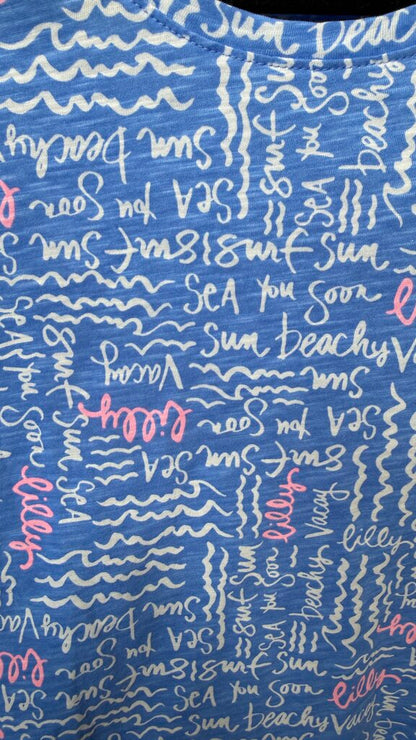 Sun Beachy
Surf Sun
SeA you Soon
Beachy
Sun Beachy
SeA you
Soon
Sun Surf
Surf Sun
SeA you Soon
lilly
Sun Beachy
Vacay
lilly
Sun
SeA you Soon
Surf Sun SeA
SeA you
Soon
Surf Sun
SeA
lilly
lilly
Vacay
lilly
Surf Sun
SeA you Soon
Beachy
Sun
Beachy Vacay
SeA you
Soon
Sun Surf
Surf Sun
lilly
SeA you Soon
lilly
Sun Beachy
Vacay